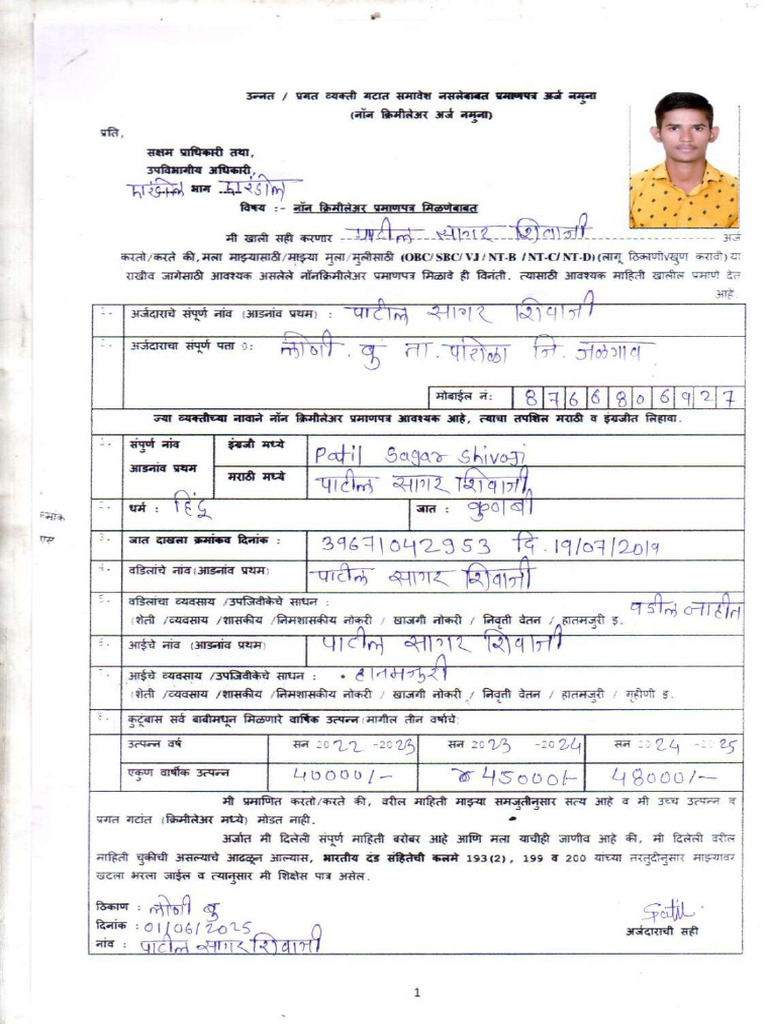 उन्नत / प्रगत व्यक्ती गटात समावेश नसलेबाबत प्रमाणपत्र अर्ज नमुना
(नॉन क्रिमीलेअर अर्ज नमुना)
प्रति,
सक्षम प्राधिकारी तथा,
उपविभागीय अधिकारी,
भाग
विषय :- नॉन क्रिमीलेअर प्रमाणपत्र मिळणेबाबत
मी खाली सही करणार पाटील सागर शिवाजी अर्ज
करतो/करते की,मला माझ्यासाठी/माझ्या मुला/मुलीसाठी (OBC/ SBC/ VJ / NT-B / NT-C/ NT-D) (लागू ठिकाणी√खुण करावी) या
राखीव जागेसाठी आवश्यक असलेले नॉनक्रिमीलेअर प्रमाणपत्र मिळावे ही विनंती. त्यासाठी आवश्यक माहिती खालील प्रमाणे देत
आहे.
१. अर्जदाराचे संपूर्ण नांव (आडनांव प्रथम) : पाटील सागर शिवाजी
२. अर्जदाराचा संपूर्ण पता : लोणी. बु ता. पारोळा जि. जळगाव
मोबाईल नं: 8766806927
ज्या व्यक्तीच्या नावाने नॉन क्रिमीलेअर प्रमाणपत्र आवश्यक आहे, त्याचा तपशिल मराठी व इंग्रजीत लिहावा.
१. संपुर्ण नांव आडनांव प्रथम इंग्रजी मध्ये Patil Sagar Shivaji
मराठी मध्ये पाटील सागर शिवाजी
२. धर्म : हिंदू जात : कुणबी
३. जात दाखला क्रमांकव दिनांक : 39671042953 दि. 19/07/2019
४. वडिलांचे नांव(आडनांव प्रथम) पाटील सागर शिवाजी
५. वडिलांचा व्यवसाय /उपजिवीकेचे साधन : वडील नाहीत
(शेती /व्यवसाय /शासकीय /निमशासकीय नोकरी / खाजगी नोकरी / निवृती वेतन / हातमजुरी इ.
६. आईचे नांव (आडनांव प्रथम) पाटील सागर शिवाजी
७. आईचे व्यवसाय /उपजिवीकेचे साधन : हातमजुरी
(शेती /व्यवसाय /शासकीय /निमशासकीय नोकरी / खाजगी नोकरी / निवृती वेतन / हातमजुरी / गृहीणी इ.
८. कुटूंबास सर्व बाबीमधून मिळणारे वार्षिक उत्पन्न(मागील तीन वर्षाचे)
उत्पन्न वर्ष सन 2022 -2023 सन 2023 -2024 सन 2024 -2025
एकुण वार्षीक उत्पन्न 40000/- 45000/- 48000/-
मी प्रमाणित करतो/करते की, वरील माहिती माझ्या समजुतीनुसार सत्य आहे व मी उच्च उत्पन्न व
प्रगत गटांत (क्रिमीलेअर मध्ये) मोडत नाही.
अर्जात मी दिलेली संपूर्ण माहिती बरोबर आहे आणि मला याचीही जाणीव आहे की, मी दिलेली वरील
माहिती चुकीची असल्याचे आढळून आल्यास, भारतीय दंड संहितेची कलमे 193(2), 199 व 200 यांच्या तरतुदीनुसार माझ्यावर
खटला भरला जाईल व त्यानुसार मी शिक्षेस पात्र असेल.
ठिकाण : लोणी बु
दिनांक : 01/06/2025
नांव : पाटील सागर शिवाजी
Patil
अर्जदाराची सही
1